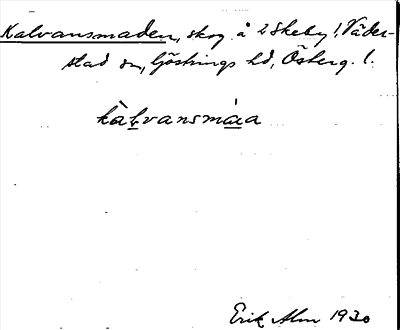 Kalvansmaden, skog å 2 Skeby, Väder-
stad sn, Göstrings hd, Österg. l.
kàlvansmáa
Erik Alm 1930